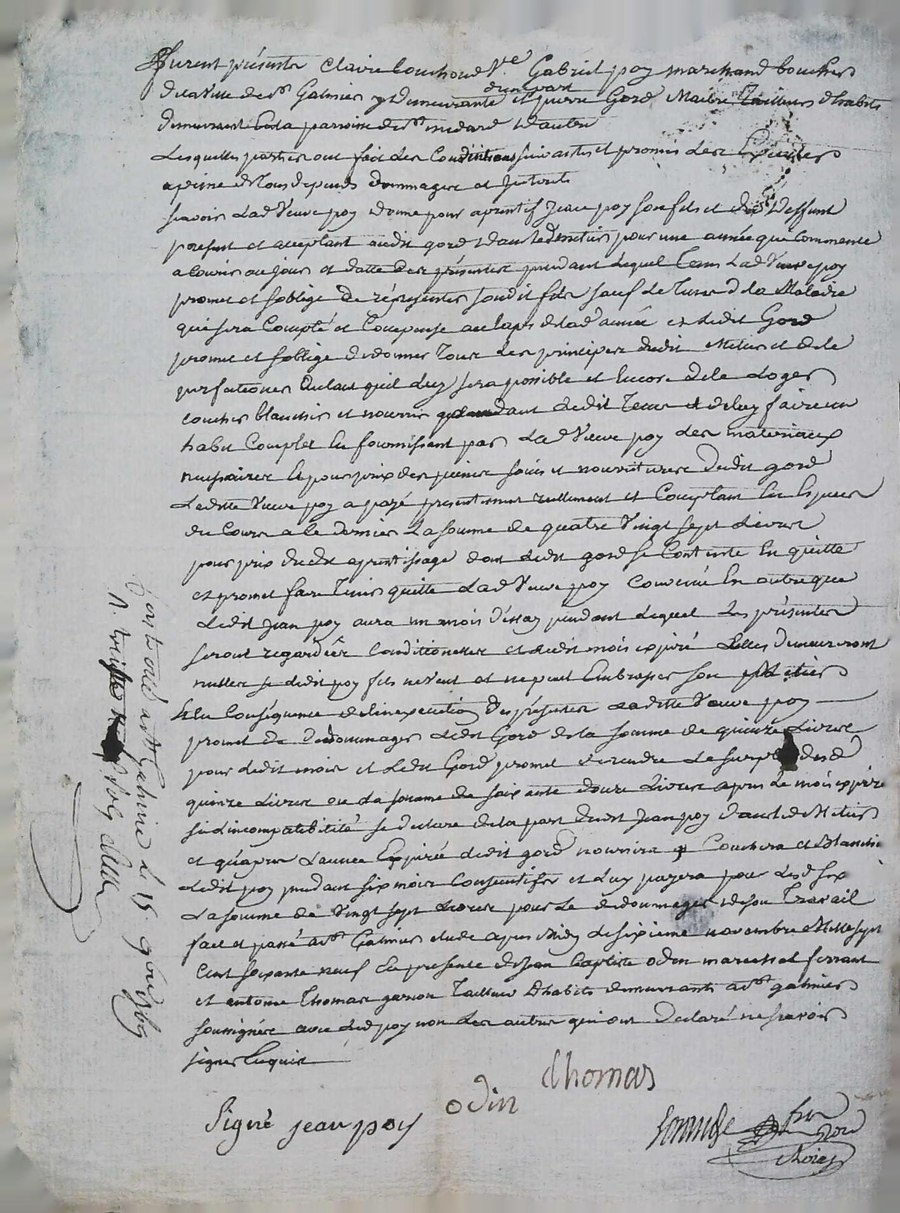 Furent présents Claire Couchoud Ve Gabriel poy marchand boucher
d'une part
de la ville de St Galmier y demeurante et pierre Gord Maitre Tailleur d'habits
demeurant en la parroisse de St medard d'autre
Lesquelles parties ont fait les Conditions suivantes et promis les Executer
a peine de tous depends dommages et interets
savoir Lad Veuve poy donne pour aprentif Jean poy son fils et dud deffunt
present et acceptant audit gord dans led metier pour une année qui commence
a courir au jour et datte des présentes pendant lequel tems Lad Veuve poy
promet et soblige de réprésenter sondit fils sauf le tems de la Maladie
qui sera Compté et Compensé au laps de lad année et ledit Gord
promet et soblige de donner tous les principes dudit Metier et de le
perfationer autant quil luy sera possible et encore de le Loger
coucher blanchir et nourrir pendant ledit Tems et de luy faire un
habit Complet en fournissant par Lad Veuve poy les materiaux
nessaires et pour prix des peines soins et nourriture dudit gord
Laditte Veuve poy a payé presentement reellement et Comptant en Especes
du Cours a ce dernier La somme de quatre Vingt sept Livres
pour prix dudit aprentissage dont ledit gord se Contente en quitte
et promet faire tenir quitte Lad Veuve poy Convenu en outre que
Ledit Jean poy aura un mois d'essay pendant Lequel Les présentes
seront regardées Conditionelles et ledit mois expiré Elles demeureront
nulles si ledit poy fils ne Veut et ne peut Embrasser son Metier
En Conséquence de l'inexecution des présentes Laditte Veuve poy
promet de dedommager Ledit Gord de la somme de quinze Livres
pour ledit mois et Ledit Gord promet de rendre Le surplus desd
quinze Livres ou La somme de soixante douze Livres apres Le mois expiré
si l'incompatibilité se declare de la part dudit Jean poy dans led Metier
et qu'apres Lannée Expirée ledit gord nourrira Couchera et Blanchira
Ledit poy pendant six mois Consecutifs et Luy payera pour Lesd six
La somme de Vingt sept Livres pour Le dedommager de son Travail
fait et passé a St Galmier etude apres Midy Le sixieme novembre Mille sept
Cent soixante neuf En presence de Jean Baptiste odin marechal ferrant
et antoine Thomas garçon Tailleur d'habits demeurants a St galmier
soussignés avec Led poy non Les autres qui ont declaré ne savoir
signer Enquis
Signé jean poy
odin
thomas
St Galmier Le 15 9bre 1769